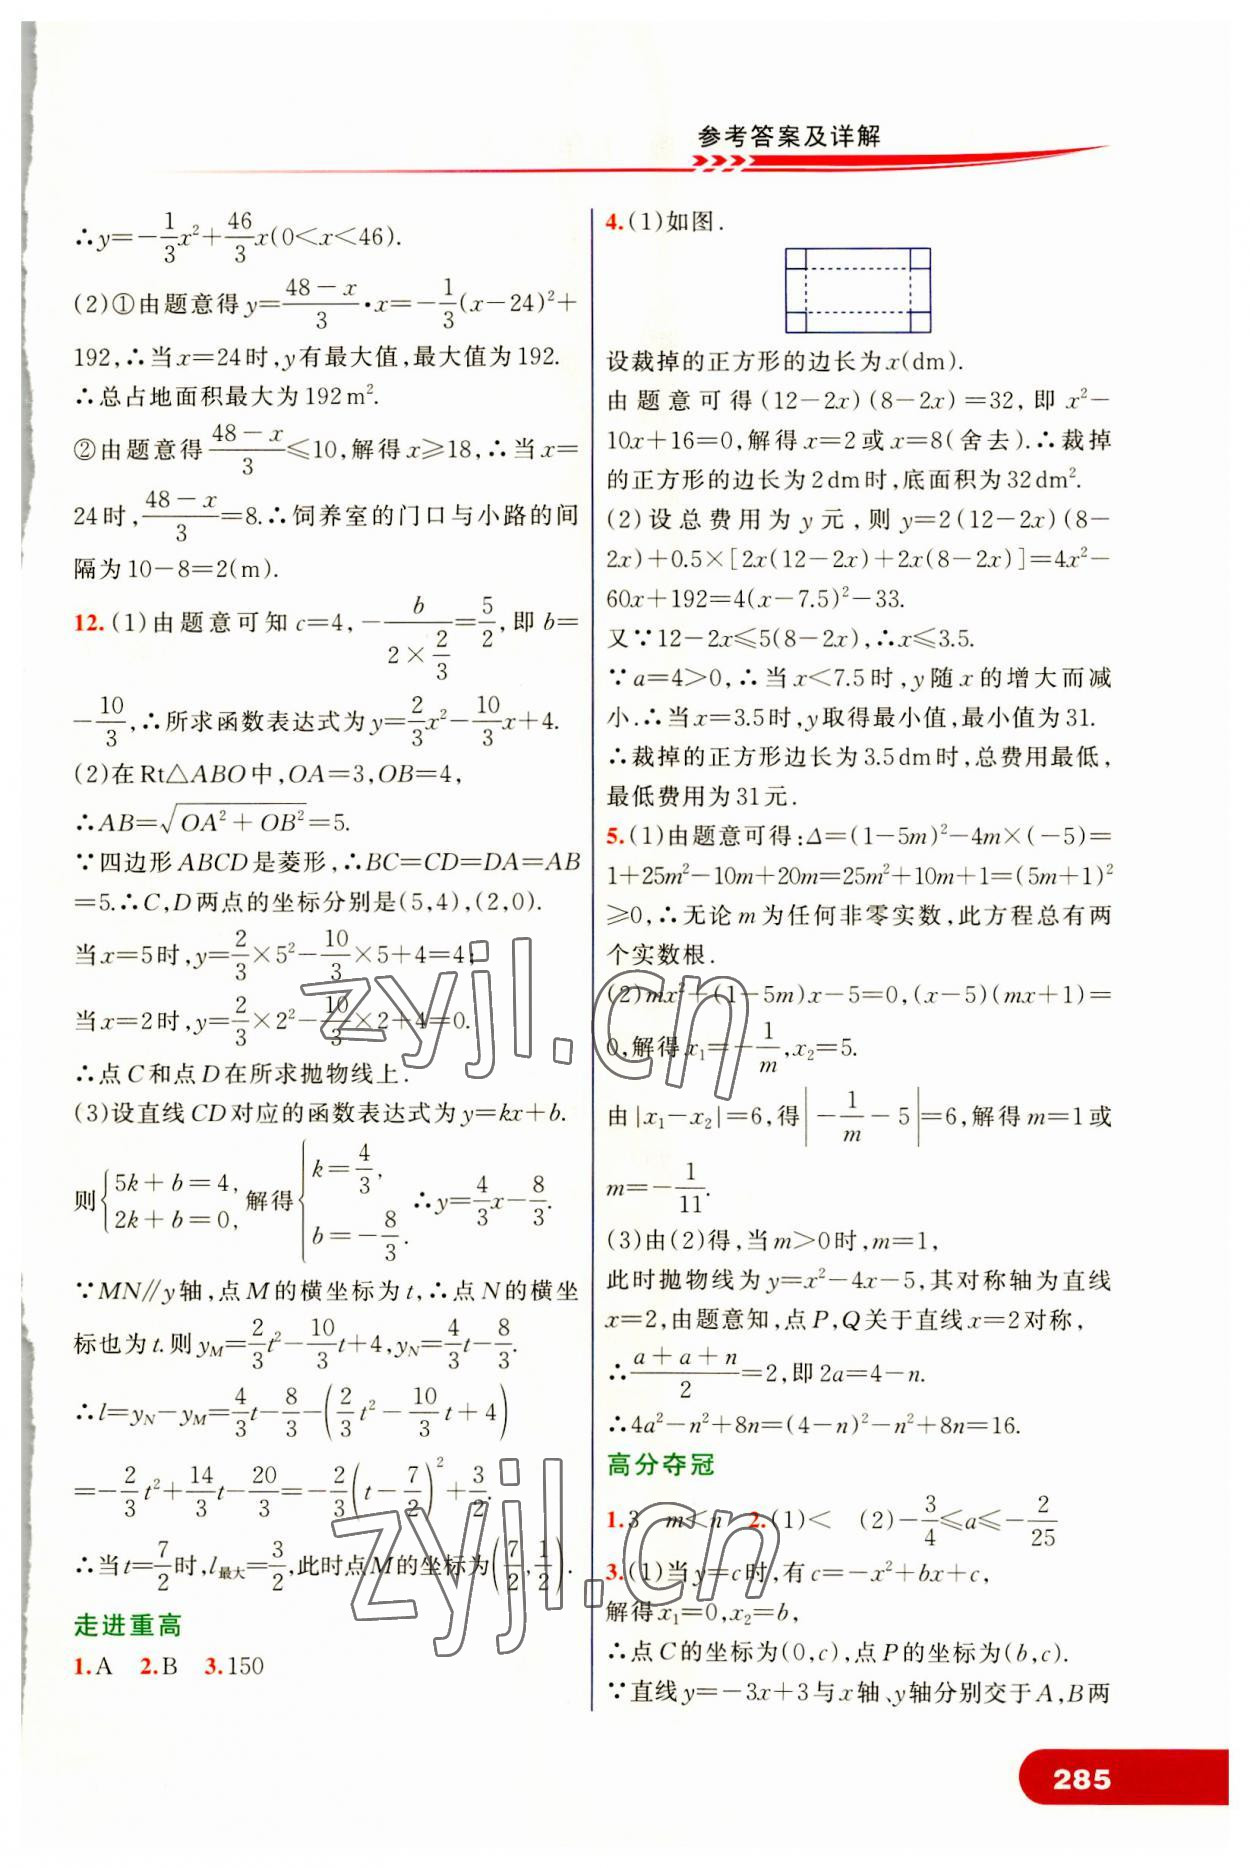 参考答案及详解
∴y=-1/3x²+46/3x(0<x<46).
(2)①由题意得y=(48-x)/3·x=-1/3(x-24)²+
192,∴当x=24时,y有最大值,最大值为192.
∴总占地面积最大为192 m².
②由题意得(48-x)/3≤10,解得x≥18,∴当x=
24时,(48-x)/3=8.∴饲养室的门口与小路的间
隔为10-8=2(m).
12.(1)由题意可知c=4,-b/(2×2/3)=5/2,即b=
-10/3,∴所求函数表达式为y=2/3x²-10/3x+4.
(2)在Rt△ABO中,OA=3,OB=4,
∴AB=√(OA²+OB²)=5.
∵四边形ABCD是菱形,∴BC=CD=DA=AB
=5.∴C,D两点的坐标分别是(5,4),(2,0).
当x=5时,y=2/3×5²-10/3×5+4=4;
当x=2时,y=2/3×2²-10/3×2+4=0.
∴点C和点D在所求抛物线上.
(3)设直线CD对应的函数表达式为y=kx+b.
则{5k+b=4, 2k+b=0, 解得{k=4/3, b=-8/3. ∴y=4/3x-8/3.
∵MN∥y轴,点M的横坐标为t,∴点N的横坐
标也为t.则y_M=2/3t²-10/3t+4,y_N=4/3t-8/3.
∴l=y_N-y_M=4/3t-8/3-(2/3t²-10/3t+4)
=-2/3t²+14/3t-20/3=-2/3(t-7/2)²+3/2.
∴当t=7/2时,l最大=3/2,此时点M的坐标为(7/2,1/2).
走进重高
1.A 2.B 3.150
4.(1)如图.
设裁掉的正方形的边长为x(dm).
由题意可得(12-2x)(8-2x)=32,即x²-
10x+16=0,解得x=2或x=8(舍去).∴裁掉
的正方形的边长为2 dm时,底面积为32 dm².
(2)设总费用为y元,则y=2(12-2x)(8-
2x)+0.5×[2x(12-2x)+2x(8-2x)]=4x²-
60x+192=4(x-7.5)²-33.
又∵12-2x≤5(8-2x),∴x≤3.5.
∵a=4>0,∴当x<7.5时,y随x的增大而减
小.∴当x=3.5时,y取得最小值,最小值为31.
∴裁掉的正方形边长为3.5 dm时,总费用最低,
最低费用为31元.
5.(1)由题意可得:Δ=(1-5m)²-4m×(-5)=
1+25m²-10m+20m=25m²+10m+1=(5m+1)²
≥0,∴无论m为任何非零实数,此方程总有两
个实数根.
(2)mx²+(1-5m)x-5=0,(x-5)(mx+1)=
0,解得x₁=-1/m,x₂=5.
由|x₁-x₂|=6,得|-1/m-5|=6,解得m=1或
m=-1/11.
(3)由(2)得,当m>0时,m=1,
此时抛物线为y=x²-4x-5,其对称轴为直线
x=2,由题意知,点P,Q关于直线x=2对称,
∴(a+a+n)/2=2,即2a=4-n.
∴4a²-n²+8n=(4-n)²-n²+8n=16.
高分夺冠
1.3 m<n 2.(1)< (2)-3/4≤a≤-2/25
3.(1)当y=c时,有c=-x²+bx+c,
解得x₁=0,x₂=b,
∴点C的坐标为(0,c),点P的坐标为(b,c).
∵直线y=-3x+3与x轴、y轴分别交于A,B两
285
zyjl.cn
zyjl.cn